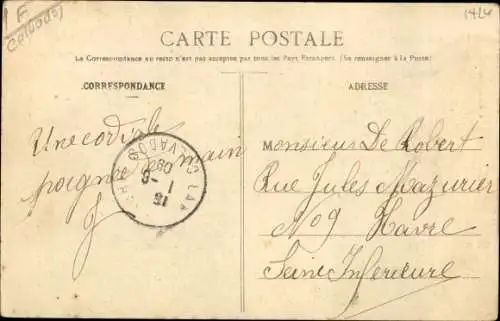 F
Calvados
1424
CARTE POSTALE
La Correspondance au recto n'est pas acceptée par tous les Pays Étrangers. (Se renseigner à la Poste)
CORRESPONDANCE
ADRESSE
Une cordiale
poignée de main
F
CALVADOS
15 - 9
09
Monsieur De Robert
Rue Jules Mazurier
No 9 Havre
Seine Inferieure